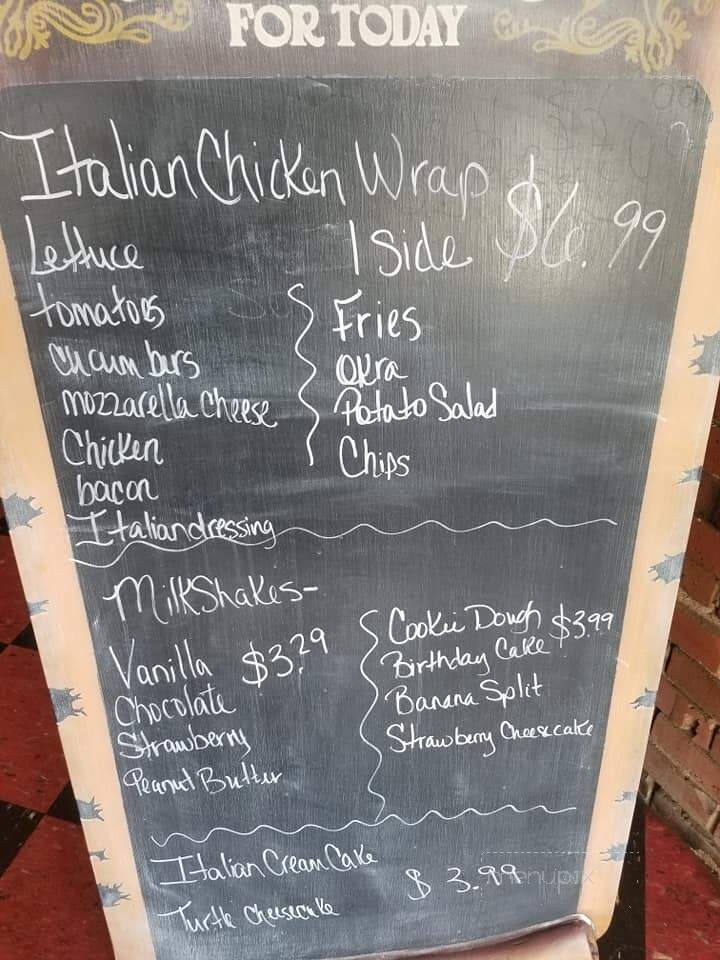 FOR TODAY
Italian Chicken Wrap $6.99
Lettuce
tomatoes
cucumbars
mozzarella cheese
Chicken
bacon
Italian dressing
1 Side
Fries
Okra
Potato Salad
Chips
MilkShakes-
Vanilla $3.29
Chocolate
Strawberry
Peanut Butter
Cookie Dough $3.99
Birthday Cake
Banana Split
Strawberry Cheesecake
Italian Cream Cake
Turtle Cheesecake
$3.99
menupix